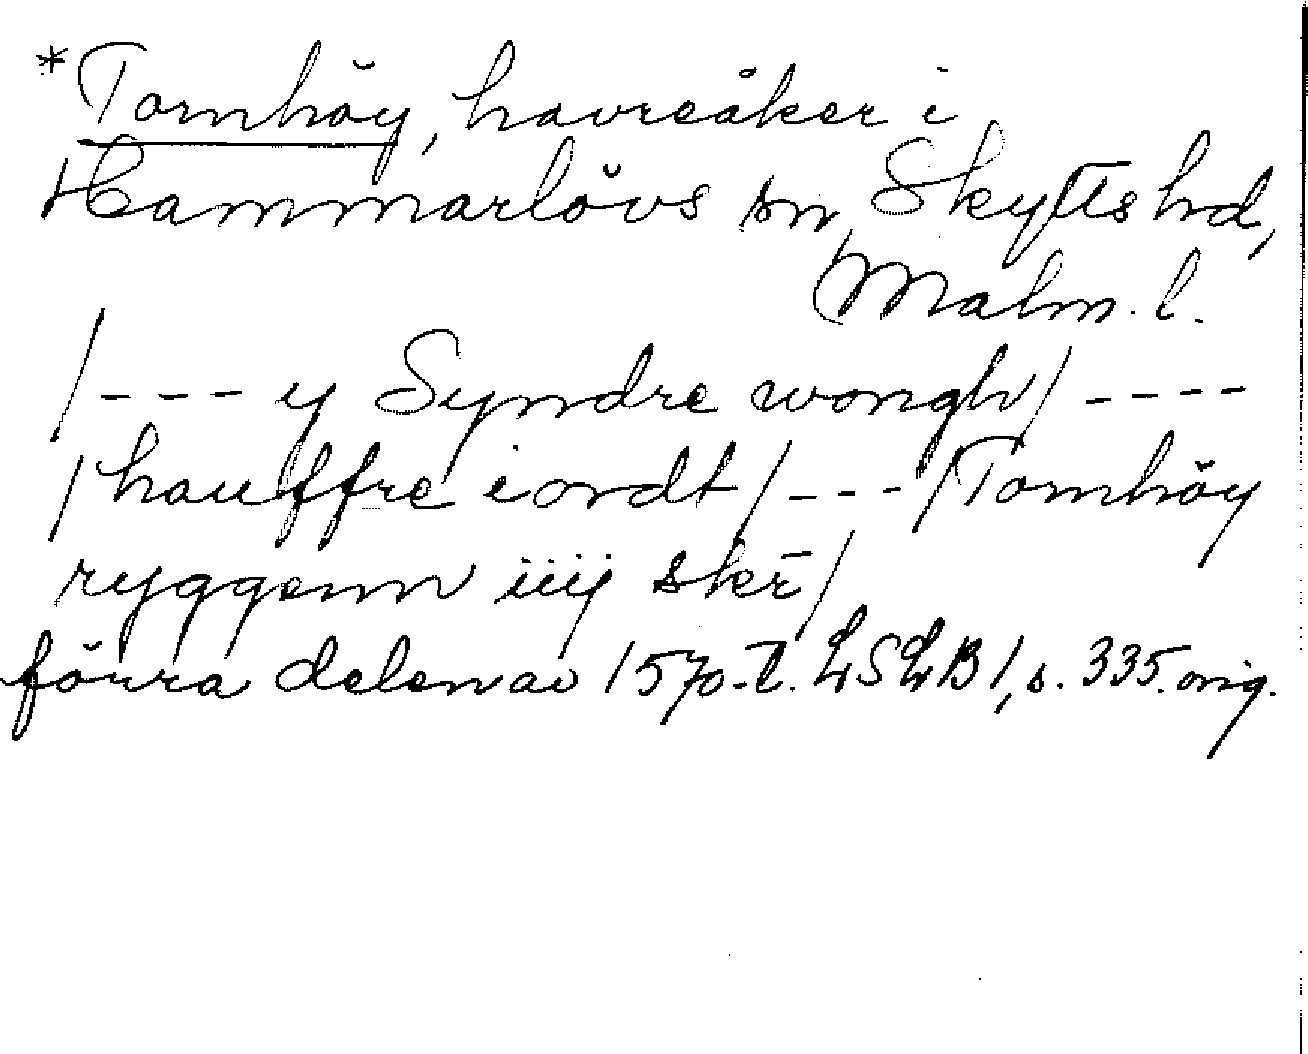 *Tornhöy, havreåker i
Hammarlövs sn, Skytts hd,
Malm. l.
/---y Syndre wongh/----
/hauffre iordt/---/Tornhöy
ryggenn iiij skr̄/
förra delen av 1570-t. LSLB 1, s. 335. orig.